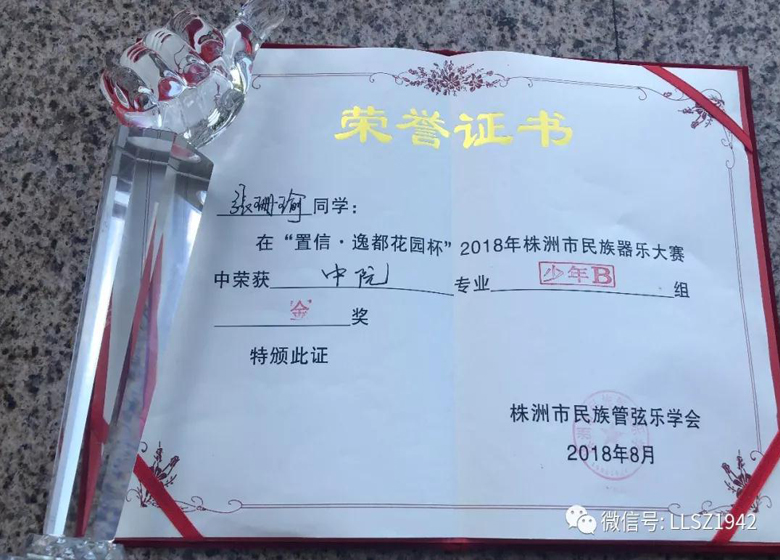 荣誉证书
张珊瑜同学：
在“置信·逸都花园杯”2018年株洲市民族器乐大赛
中荣获 中阮 专业 少年B 组
金 奖
特颁此证
株洲市民族管弦乐学会
2018年8月
微信号: LLSZ1942